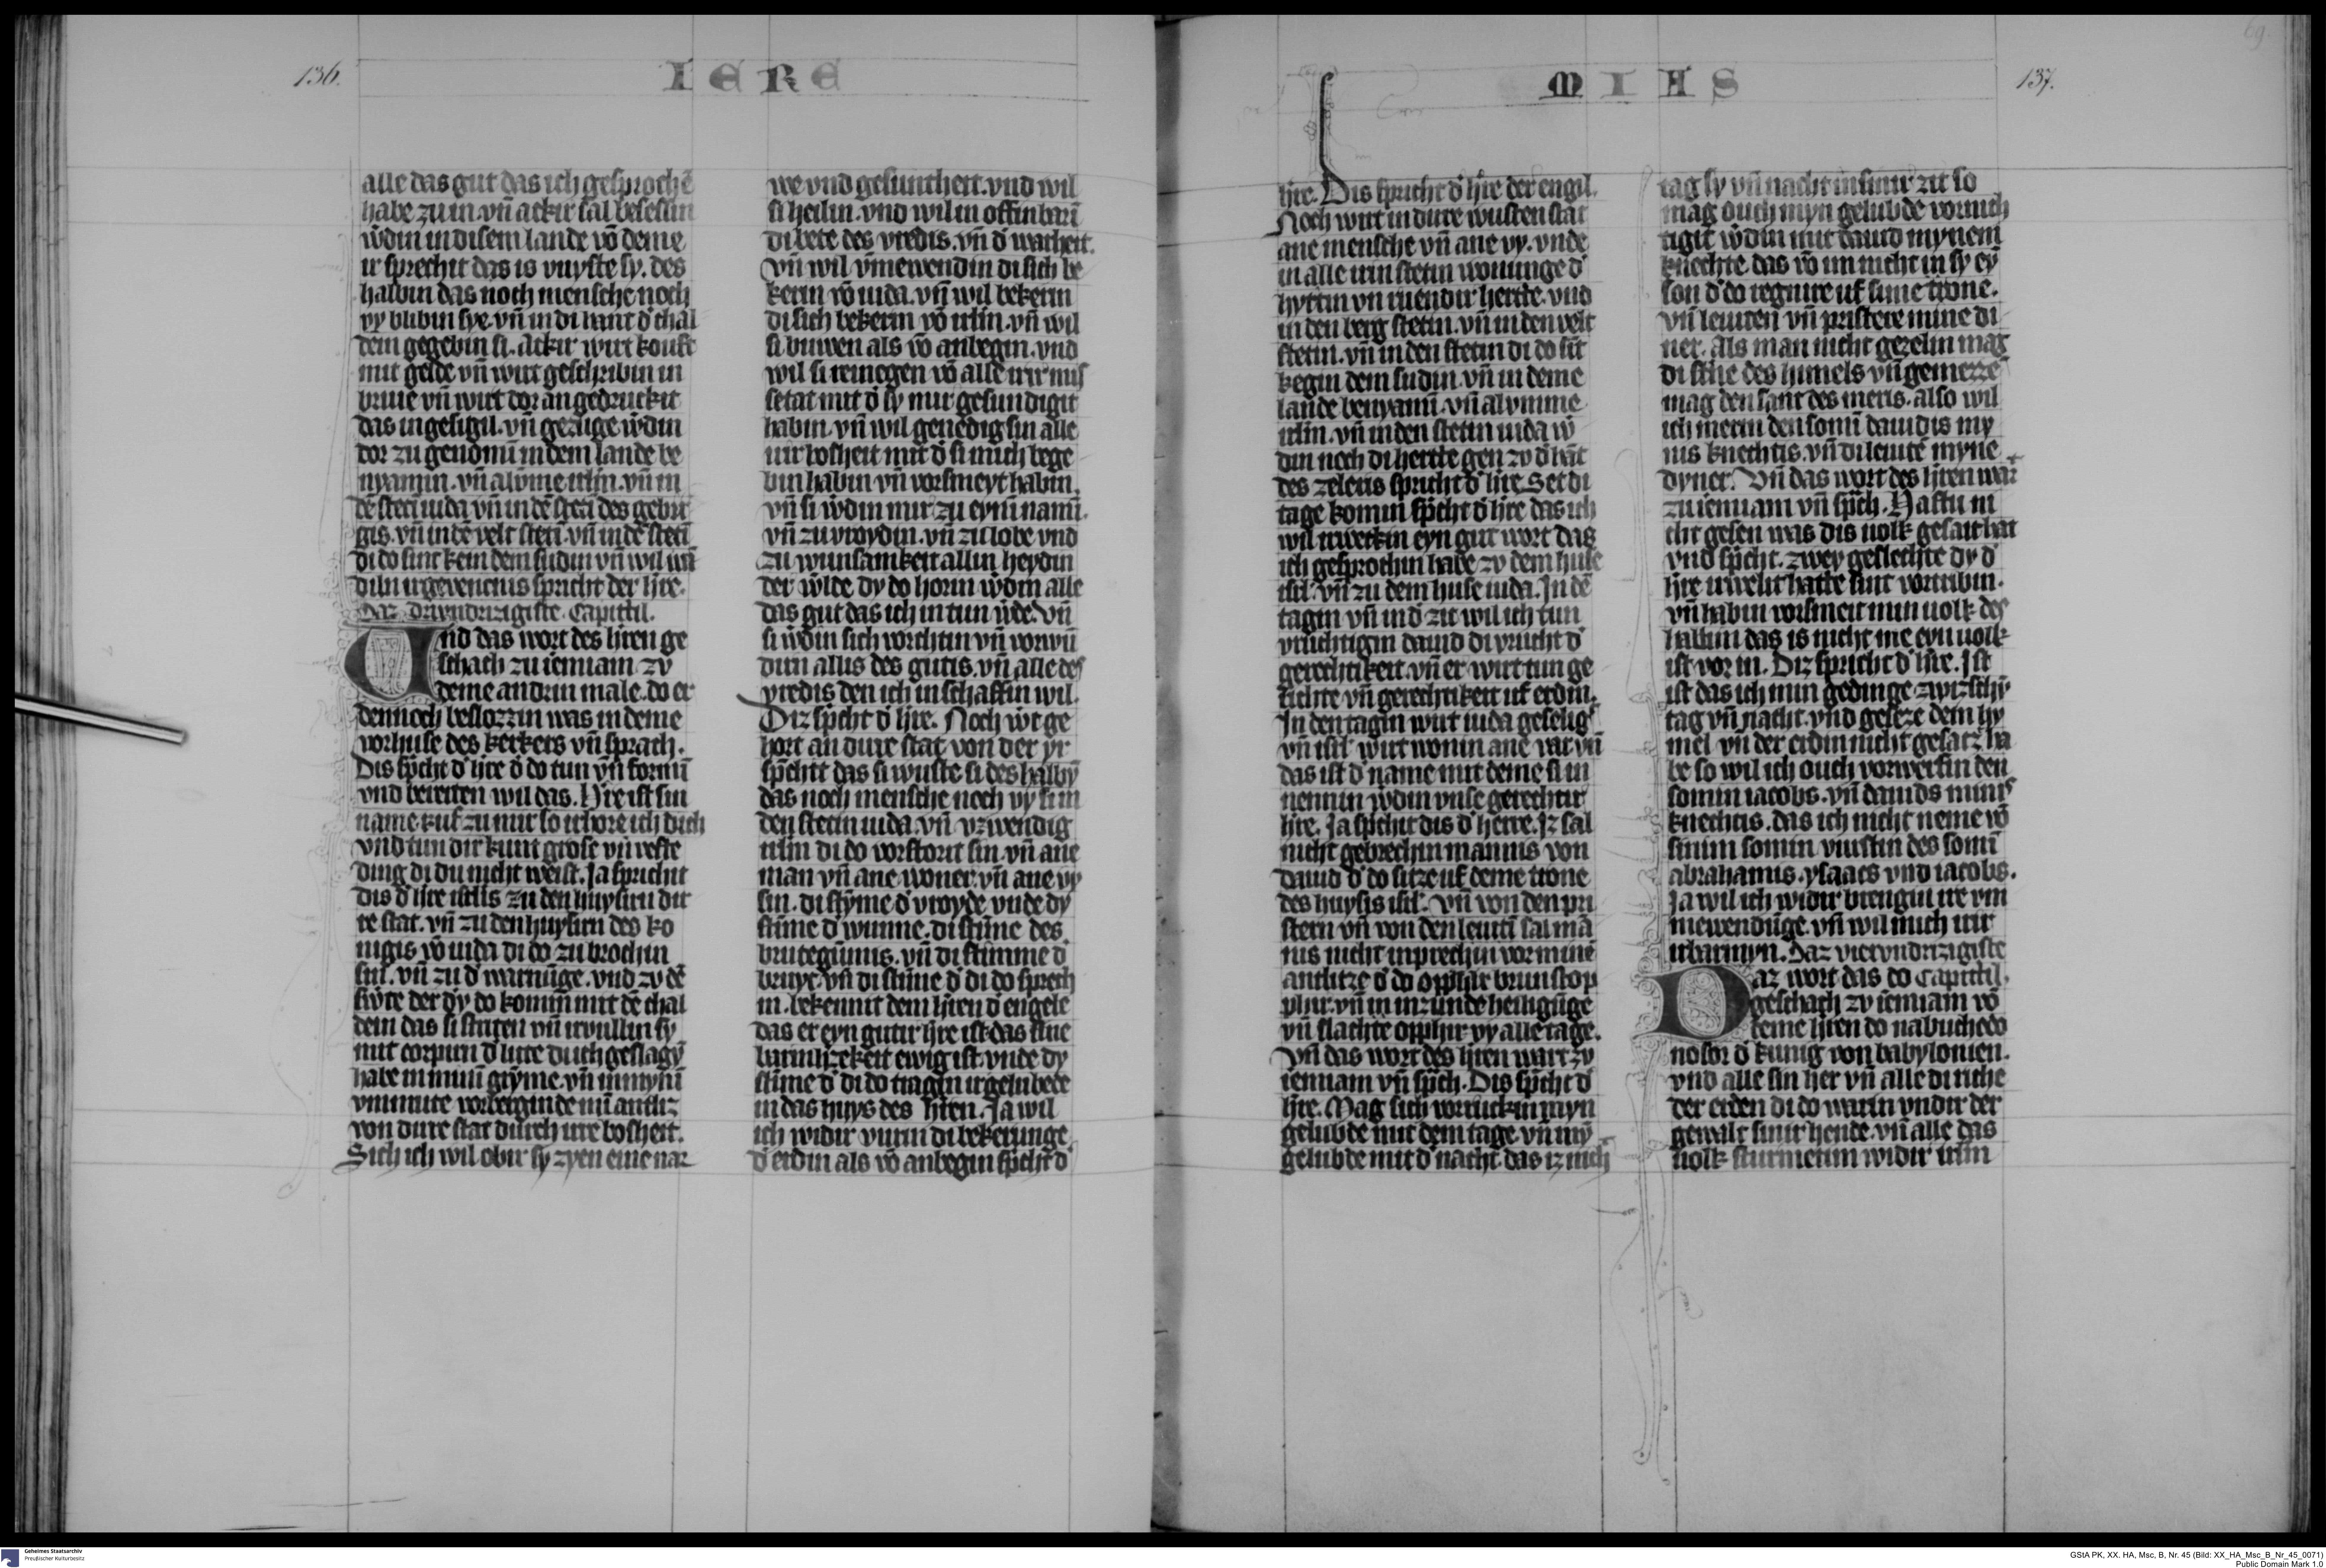 136.
I E R E
alle das gut das ich gesprochē
habe zu in. vn̄ ackir sal besessin
w̄din in disem lande vō deme
ir sprechit das is vuyste sy. des
halbin das noch mensche noch
vy blibin sye. vn̄ in di hant d' chal
dein gegebin si. Ackir wirt kouft
mit gelde vn̄ wirt geschribin in
briue vn̄ wirt dor an gedruckit
das ingesigil. vn̄ gezuge w̄din
dor zu genomī in dem lande be
nyamin. vn̄ alvme irlm̄. vn̄ in
dē stetī iuda vn̄ in dē stetī des gebir
gis. vn̄ in dē velt stetī. vn̄ in dē stetī
di do sint kein dem sudin vn̄ wil wā
diln ir gevencnis spricht der h're.
Daz Dryvndrizigiste Capittil.
Vnd das wort des h'ren ge
schach zu ieremiam zv
deme andrin male. do er
dennoch beslozzin was in deme
vorhuse des kerkers vn̄ sprach.
Dis sp̄cht d' h're d' do tun vn̄ formī
vnd bereiten wil das. H're ist sin
name ruf zu mir so irhore ich dich
vnd tun dir kunt grose vn̄ veste
ding di du nicht weist. Ja sprichit
dis d' h're isrlis zu den huysirn dir
re stat. vn̄ zu den huysirn des ko
nigis vō iuda di do zu brochin
sint. vn̄ zu d' warnūge. vnd zv dē
sw̄te der dy do komin mit dē chal
dein das si striten vn̄ irvullin sy
mit corpirn d' lute di ich geslagī
habe in minī gryme. vn̄ in mynī
vnmute vorbergin de mī antliz
von dirre stat durch ire bosheit.
Sich ich wil obir sy zyen eine nar
we vnd gesuntheit. vnd wil
si heilin. vnd wil in offinbarī
di bete des vredis. vn̄ d' warheit.
Vn̄ wil vm̄ewendin di sich be
kerin vō iuda. vn̄ wil bekerin
di sich bekerin vō irlm̄. vn̄ wil
si buwen als vō anbegin. vnd
wil si reinegen vō alle irir mis
setat mit d' sy mir gesundigit
habin. vn̄ wil genedig sin alle
irir bosheit mit d' si mich bege
bin habin vn̄ vorsmeyt habin.
vn̄ si w̄din mir zu eynī namī.
vn̄ zu vroydin. vn̄ zu lobe vnd
zu wunsamkeit allin heydin
der w̄lde dy do horin w̄din alle
das gut das ich in tun w̄de. Vn̄
si w̄din sich vorchtin vn̄ vorwū
dirn allis des gutis. vn̄ alle des
vredis den ich in schaffin wil.
Diz sp̄cht d' h're. Noch w̄t ge
hort an dirre stat von der yr
sp̄chtt das si wuste si des halbȳ
das noch mensche noch vy si in
den stetin iuda. vn̄ vzwendig
irlm̄ di do vorstorit sin. vn̄ ane
man vn̄ ane woner. vn̄ ane vy
sin. di stȳme d' vroyde vnde dy
stīme d' wunne. di stīme des
brutegūmis. vn̄ di stimme d'
bruyt. vn̄ di stīme d' di do sprech
in. bekennit dem h'ren d' engele
das er eyn gutir h're ist das sine
barmh'zekeit ewig ist. vnde dy
stīme d' di do tragin ir gelubede
in das huys des h'ren. Ja wil
ich widir vurin di bekerunge
d' erdin als vō anbegin sp̄cht d'
M I A S
137.
69
h're. Dis spricht d' h're der engil.
Noch wirt in dirre wusten stat
ane mensche vn̄ ane vy. vnde
in alle irin stetin wonunge d'
hyrtin vn̄ ruendir herte. vnd
in den berg stetin. vn̄ in den velt
stetin. vn̄ in den stetin di do sīt
kegin dem sudin. vn̄ in deme
lande benyamī. vn̄ al vmme
irlm̄. vn̄ in den stetin iuda w̄
din noch di hertte gen zv d' hāt
des zeleris spricht d' h're. Set di
tage komin sp̄cht d' h're das ich
wil irweckin eyn gut wort das
ich gesprochin habe zv dem huse
isrl'. vn̄ zu dem huse iuda. In dē
tagin vn̄ in d' zit wil ich tun
vruchtigin dauid di vrucht d'
gerechtikeit. vn̄ er wirt tun ge
richte vn̄ gerechtikeit uf erdin.
In den tagin wirt iuda geselig'
vn̄ isrl' wirt wonin ane var vn̄
das ist d' name mit deme si in
nennin w̄din vnse gerechtir
h're. Ja sp̄chit dis d' herre. Iz sal
nicht gebrechin mannis von
dauid d' do sitze uf deme trone
des huysis isrl'. Vn̄ von den pri
stern vn̄ von den leuitī sal mā
nis nicht inprechin vor minē
antlitze d' do opphir brunstop
phir. vn̄ in inzunde heiligūge
vn̄ slachte opphir vy alle tage.
Vn̄ das wort des h'ren wart zv
ieremiam vn̄ sp̄ch. Dis sp̄cht d'
h're. Mag sich vorruckin myn
gelubde mit dem tage. vn̄ mȳ
gelubde mit d' nacht. das iz nich
tag sy vn̄ nacht in sinir zit so
mag ouch myn gelubde vornich
tigit w̄din mit dauid mynem
knechte. das vō im nicht in sy ey
son d' do regnire uf sime trone.
vn̄ leuiten vn̄ pristere mine di
ner. Als man nicht gezelin mag
di st'ne des himels vn̄ gemezzē
mag den sant des meris. also wil
ich merin den somī dauidis my
nis knechtis. vn̄ di leuitē myne
dyner. Vn̄ das wort des h'ren war
zu ieremiam vn̄ sp̄ch. Hastu ni
cht gesen was dis uolk gesait hat
vnd sp̄cht. zwey geslechte dy d'
h're irwelit hatte sint vortribin.
vn̄ habin vorsmeit min uolk des
halbin das is nicht me eyn uolk
ist vor in. Diz spricht d' h're. Ist
ist das ich min gedinge zwizschī
tag vn̄ nacht. vnd geseze dem hy
mel vn̄ der erdin nicht gesatz ha
be so wil ich ouch vorwerfin den
somin iacobs. vn̄ dauids minis
knechtis. das ich nicht neme vō
sinim somin vurstin des somī
abrahamis. ysaacs vnd iacobs.
Ja wil ich widir brengin ire vm
mewendūge. vn̄ wil mich irir
irbarmyn. Daz viervndrizigiste
Daz wort das do Capittil.
geschach zv ieremiam vō
deme h'ren do nabuchodo
nosor d' kunig von babylonien.
vnd alle sin her vn̄ alle di riche
der erden di do warin vndir der
gewalt sinir hende. vn̄ alle das
uolk sturmetim widir irlm̄
Geheimes Staatsarchiv
Preußischer Kulturbesitz
GStA PK, XX. HA, Msc, B, Nr. 45 (Bild: XX_HA_Msc_B_Nr_45_0071)
Public Domain Mark 1.0